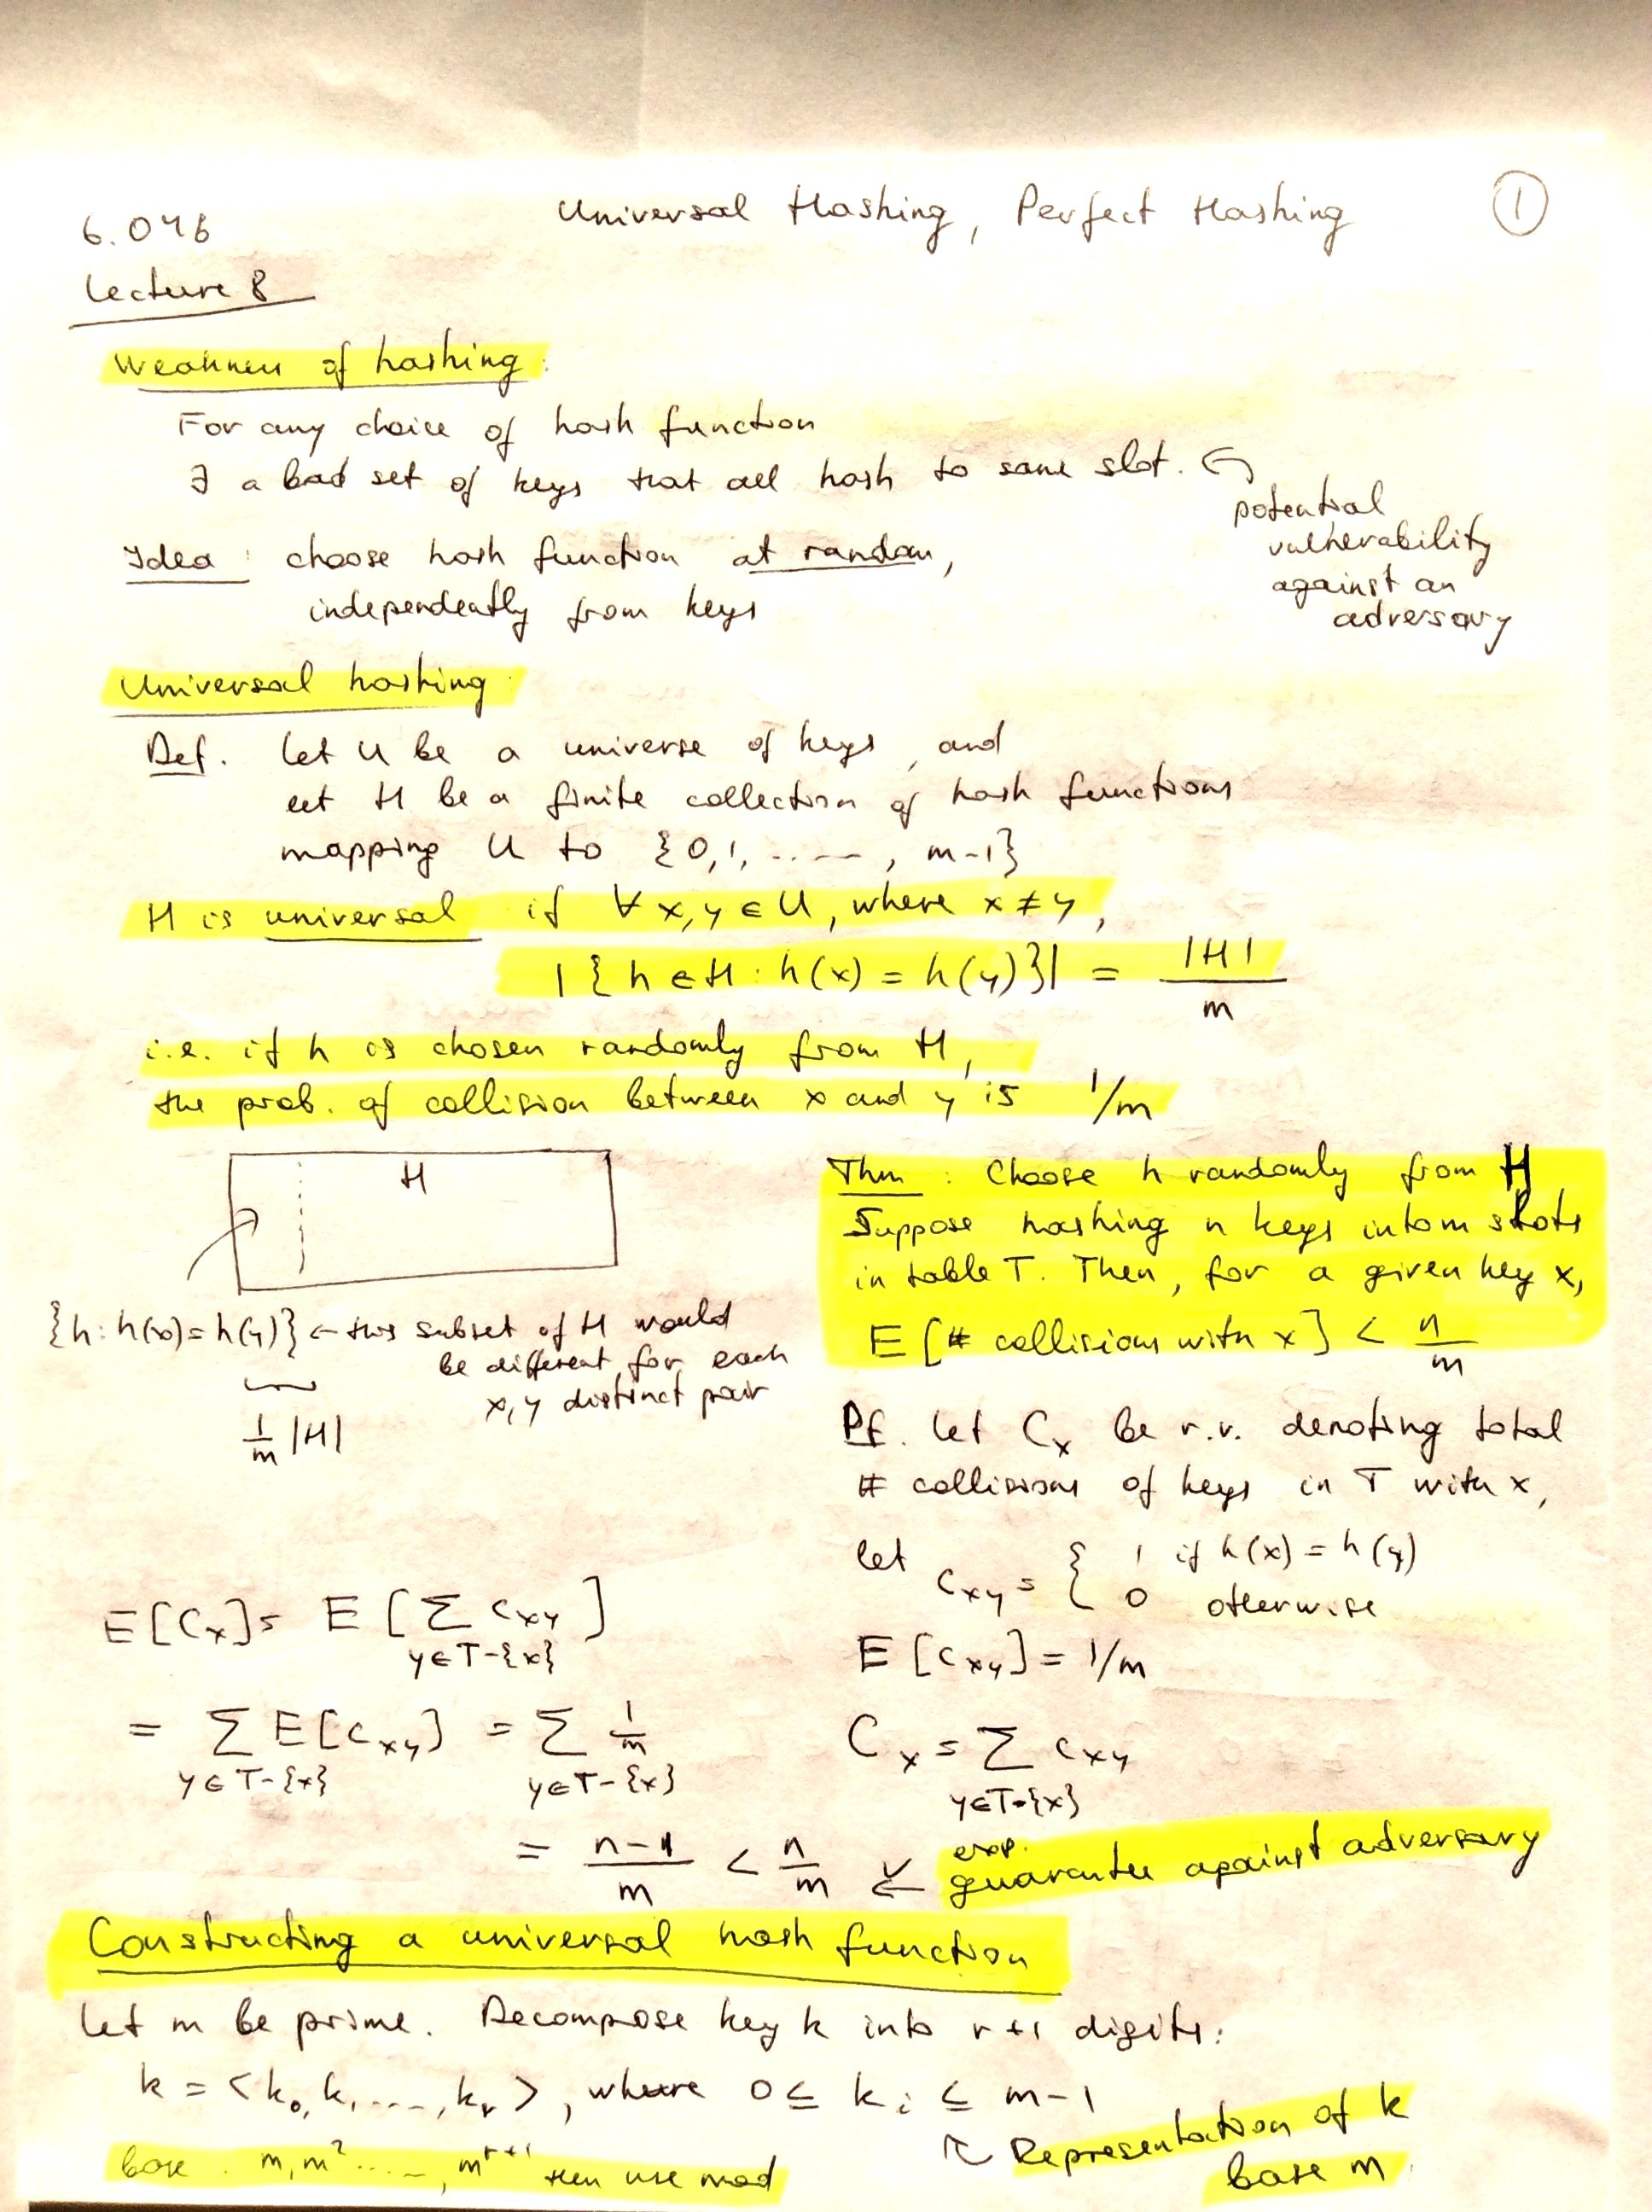 6.046
Universal Hashing, Perfect Hashing
1
Lecture 8
Weakness of hashing:
For any choice of hash function
∃ a bad set of keys that all hash to same slot. ↩
potential
vulnerability
against an
adversary
Idea: choose hash function at random,
independently from keys
Universal hashing:
Def. Let U be a universe of keys, and
let H be a finite collection of hash functions
mapping U to {0,1, ....., m-1}
H is universal if ∀ x,y ∈ U, where x ≠ y,
|{h ∈ H : h(x) = h(y)}| = |H|/m
i.e. if h is chosen randomly from H,
the prob. of collision between x and y is 1/m
H
{h: h(x)=h(y)} ← this subset of H would
be different for each
x,y distinct pair
1/m |H|
Thm: Choose h randomly from H
Suppose hashing n keys into m slots
in table T. Then, for a given key x,
E[# collisions with x] < n/m
Pf. Let Cx be r.v. denoting total
# collisions of keys in T with x,
let cxy = { 1 if h(x) = h(y)
0 otherwise
E[cxy] = 1/m
Cx = Σ cxy
y∈T-{x}
E[Cx] = E[Σ cxy]
y∈T-{x}
= Σ E[cxy] = Σ 1/m
y∈T-{x} y∈T-{x}
= n-1/m < n/m ← exp. guarantee against adversary
Constructing a universal hash function
Let m be prime. Decompose key k into r+1 digits:
k = <k0, k1, ..., kr>, where 0 ≤ ki ≤ m-1
↖ Representation of k
base m
base m, m² ...., m^r+1 then use mod